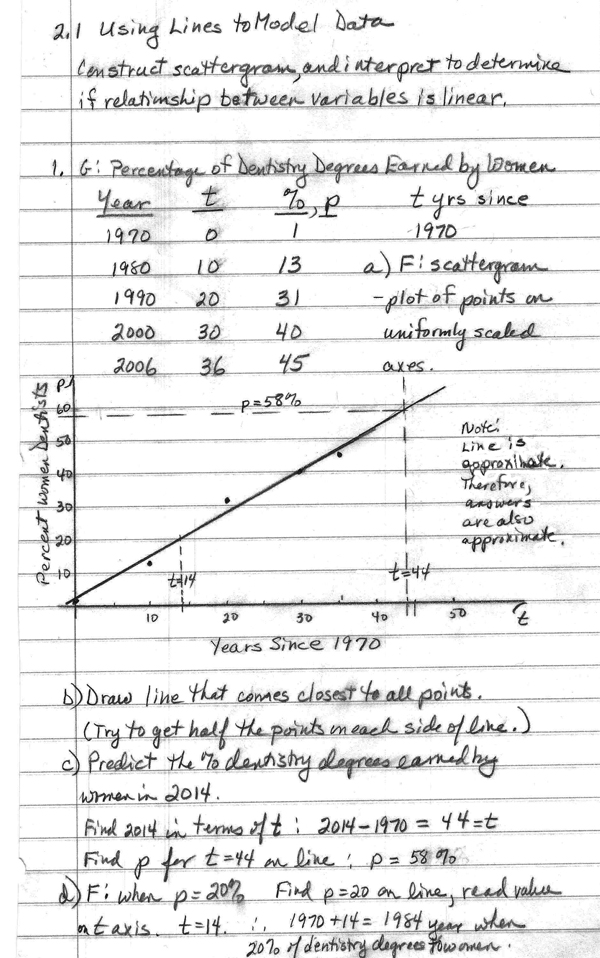 2.1 Using Lines to Model Data
Construct scattergram, and interpret to determine
if relationship between variables is linear.
1. G: Percentage of Dentistry Degrees Earned by Women
Year t %, p t yrs since
1970 0 1 -1970
1980 10 13 a) F: scattergram
1990 20 31 -plot of points on
2000 30 40 uniformly scaled
2006 36 45 axes.
Percent Women Dentists
p
60
50
40
30
20
10
p=58%
t=14
t=44
Note:
Line is
approximate.
Therefore,
answers
are also
approximate.
10 20 30 40 50 t
Years Since 1970
b) Draw line that comes closest to all points.
(Try to get half the points on each side of line.)
c) Predict the % dentistry degrees earned by
women in 2014.
Find 2014 in terms of t : 2014-1970 = 44=t
Find p for t=44 on line : p = 58 %
d) F: when p=20% Find p=20 on line, read value
on t axis. t=14. ∴ 1970+14= 1984 year when
20% of dentistry degrees to women.